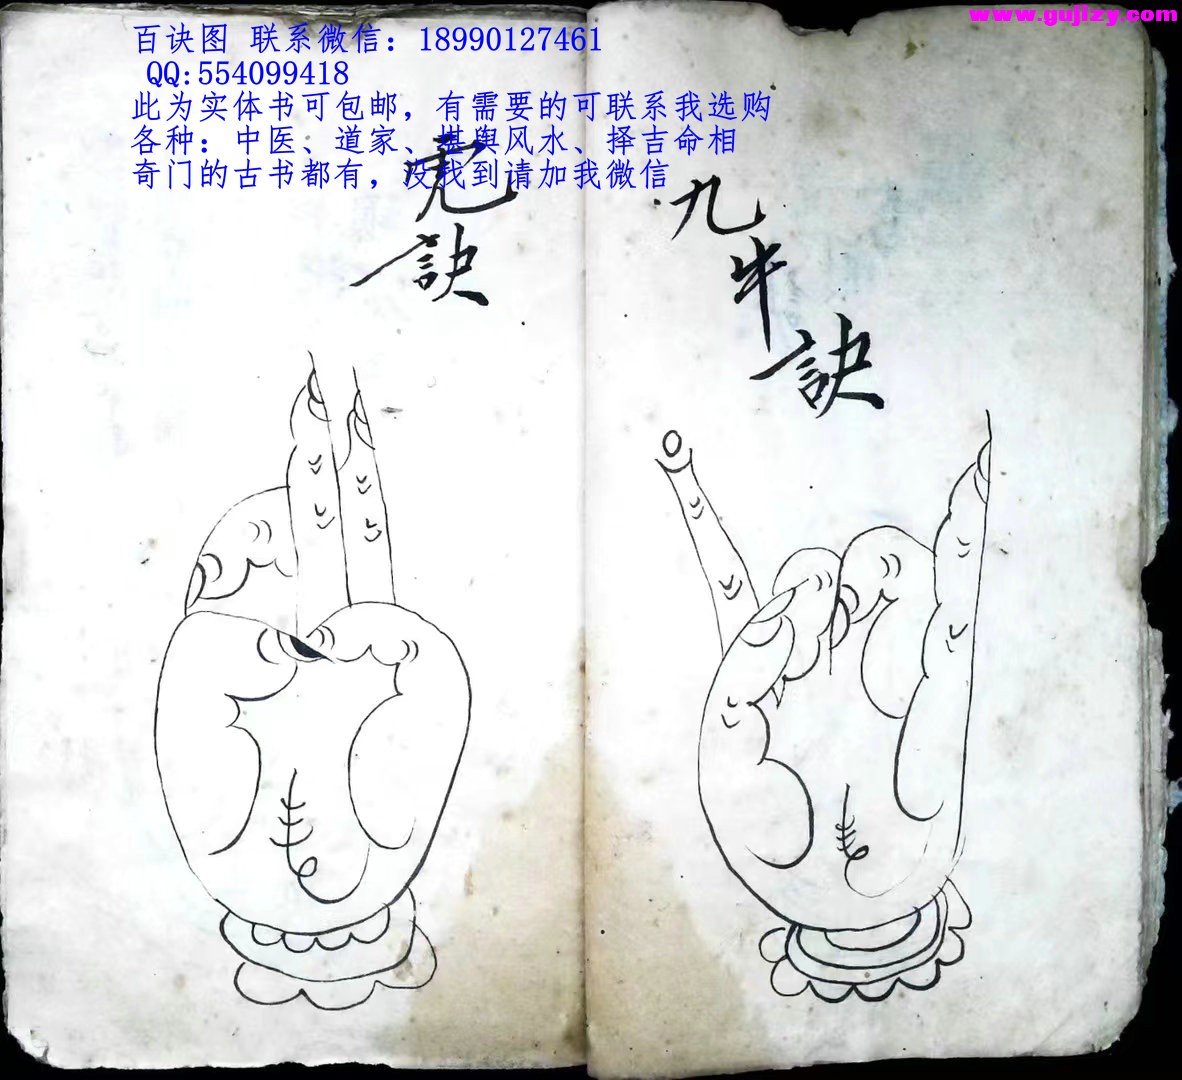 www.gujizy.com
百诀图 联系微信：18990127461
QQ:554099418
此为实体书可包邮，有需要的可联系我选购
各种：中医、道家、堪舆风水、择吉命相
奇门的古书都有，没找到请加我微信
九牛訣
虎訣